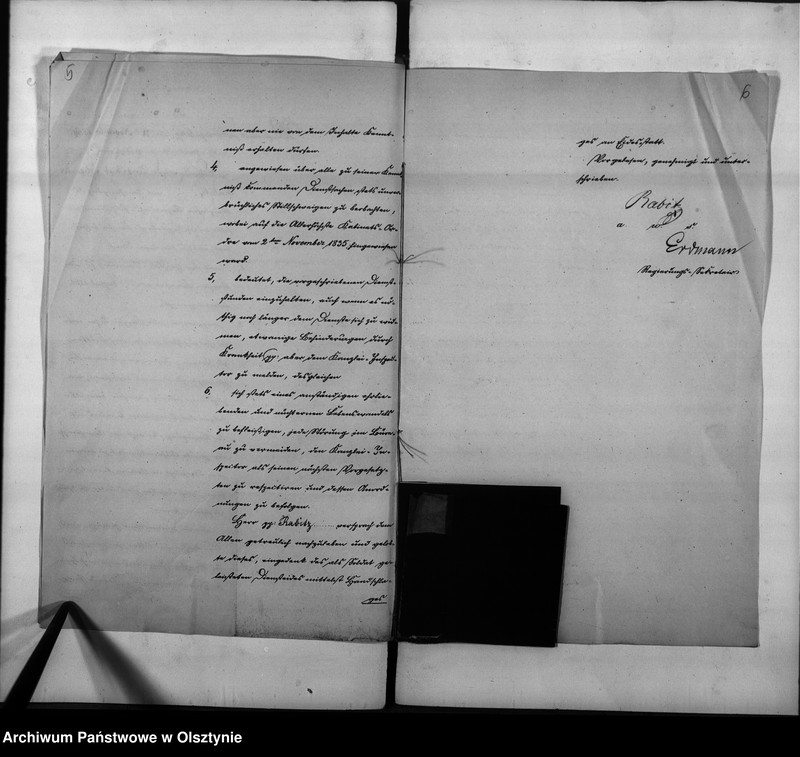 5
nen aber nie von dem Inhalte Kennt-
niß erhalten dürfen.
4, angewiesen über alle zu seiner Kennt-
niß kommenden Dienstsachen stets unver-
brüchliches Stillschweigen zu beobachten,
wobei auf die Allerhöchste Kabinets-Or-
dre vom 2ten November 1835 hingewiesen
ward.
5, bedeutet, die vorgeschriebenen Dienst-
stunden einzuhalten, auch wenn es nö-
thig noch länger dem Dienste sich zu wid-
men, etwanige Behinderungen durch
Krankheit pp. aber dem Kanzlei-Inspek-
tor zu melden, desgleichen
6, sich stets eines anständigen ehrlie-
benden und nüchternen Lebenswandels
zu befleißigen, jede Störung im Bure-
au zu vermeiden, den Kanzlei-In-
spektor als seinen nächsten Vorgesetz-
ten zu respektiren und dessen Anord-
nungen zu befolgen.
Herr pp. Rabitz versprach dem
Allen getreulich nachzuleben und gelob-
te dieses, eingedenk des als Soldat ge-
leisteten Diensteides mittelst Handschla-
ges
6
ges an Eidesstatt.
Vorgelesen, genehmigt und unter-
schrieben.
Rabitz
a. u. s.
Erdmann
Regierungs-Sekretair
Archiwum Państwowe w Olsztynie